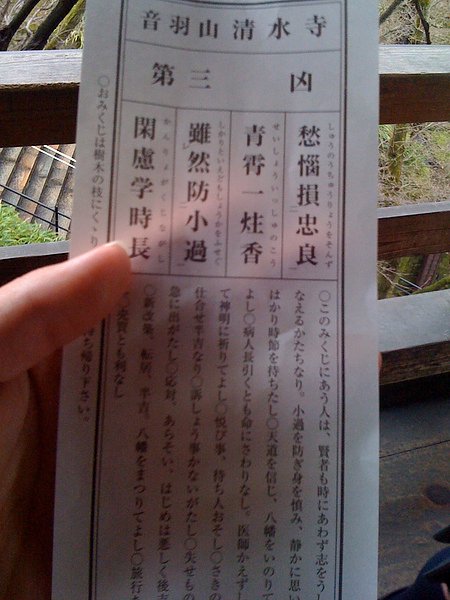 音羽山清水寺
第三 凶
しゅうのうちゅうりょうをそんず
愁惱損忠良
せいしょういっしゅのこう
青霄一炷香
しかりといえどもしょうかをふせぐ
雖然防小過
かんりょがくじながし
閑慮学時長
〇このみくじにあう人は、賢者も時にあわず志をう
なえるかたちなり。小過を防ぎ身を慎み、静かに思い
はかり時節を待ちたし〇天道を信じ、八幡をいのりて
よし〇病人長引くとも命にさわりなし。医師かえず
て神明に祈りてよし〇悦び事、待ち人おそし〇さきの
仕合せ半吉なり〇訴しょう事かないがたし〇失せもの
急に出がたし〇応対、あらそい、はじめは悪しく後吉
〇新改築、転居、半吉。八幡をまつりてよし〇旅行
売買とも利なし
〇おみくじは樹木の枝にくゝり
ち帰り下さい。